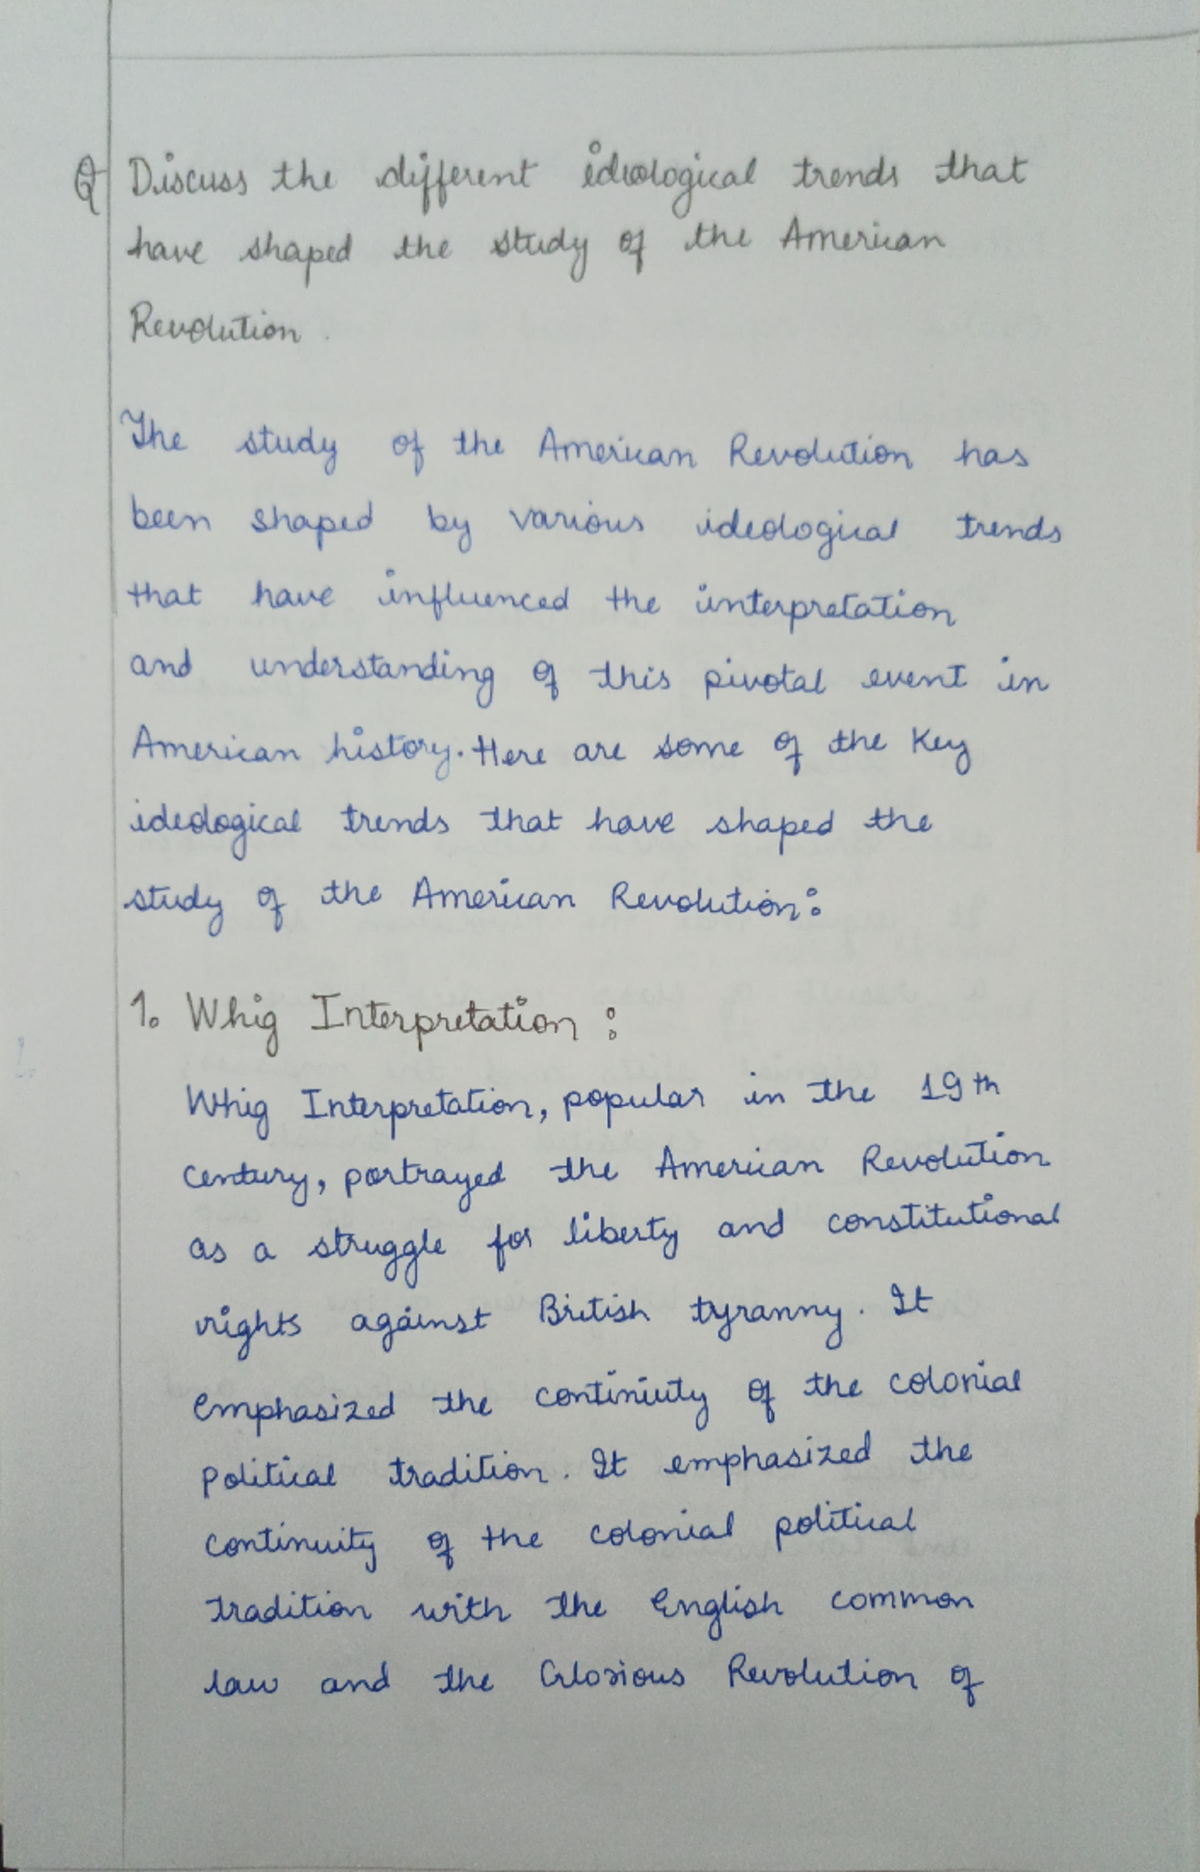 Q Discuss the different ideological trends that
have shaped the study of the American
Revolution.
The study of the American Revolution has
been shaped by various ideological trends
that have influenced the interpretation
and understanding of this pivotal event in
American history. Here are some of the Key
ideological trends that have shaped the
study of the American Revolution:
1. Whig Interpretation :
Whig Interpretation, popular in the 19th
century, portrayed the American Revolution
as a struggle for liberty and constitutional
rights against British tyranny. It
emphasized the continiuty of the colonial
political tradition. It emphasized the
continuity of the colonial political
tradition with the English common
law and the Glorious Revolution of